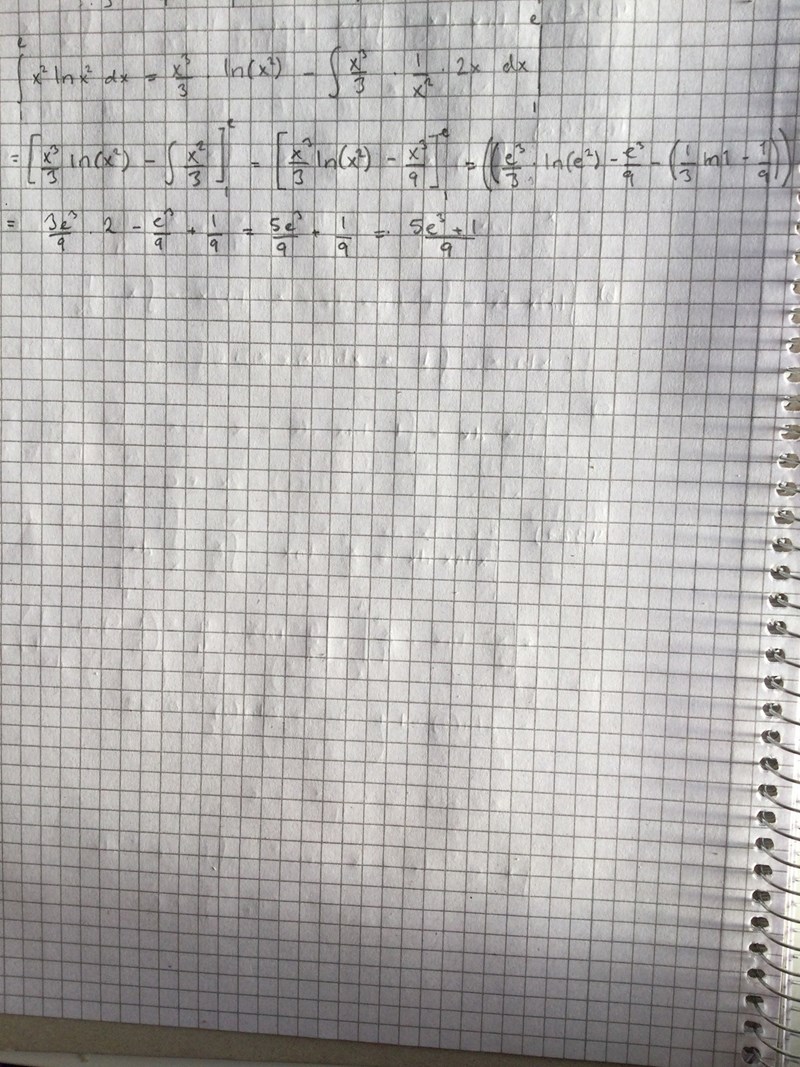 ∫₁ᵉ x² ln x² dx = x³/3 · ln(x²) - ∫ x³/3 · 1/x² · 2x dx |₁ᵉ
= [x³/3 ln(x²) - ∫ x²/3]₁ᵉ = [x³/3 ln(x²) - x³/9]₁ᵉ = ((e³/3 · ln(e²) - e³/9 - (1/3 ln1 - 1/9))
= 3e³/9 · 2 - e³/9 + 1/9 = 5e³/9 + 1/9 = 5e³+1/9